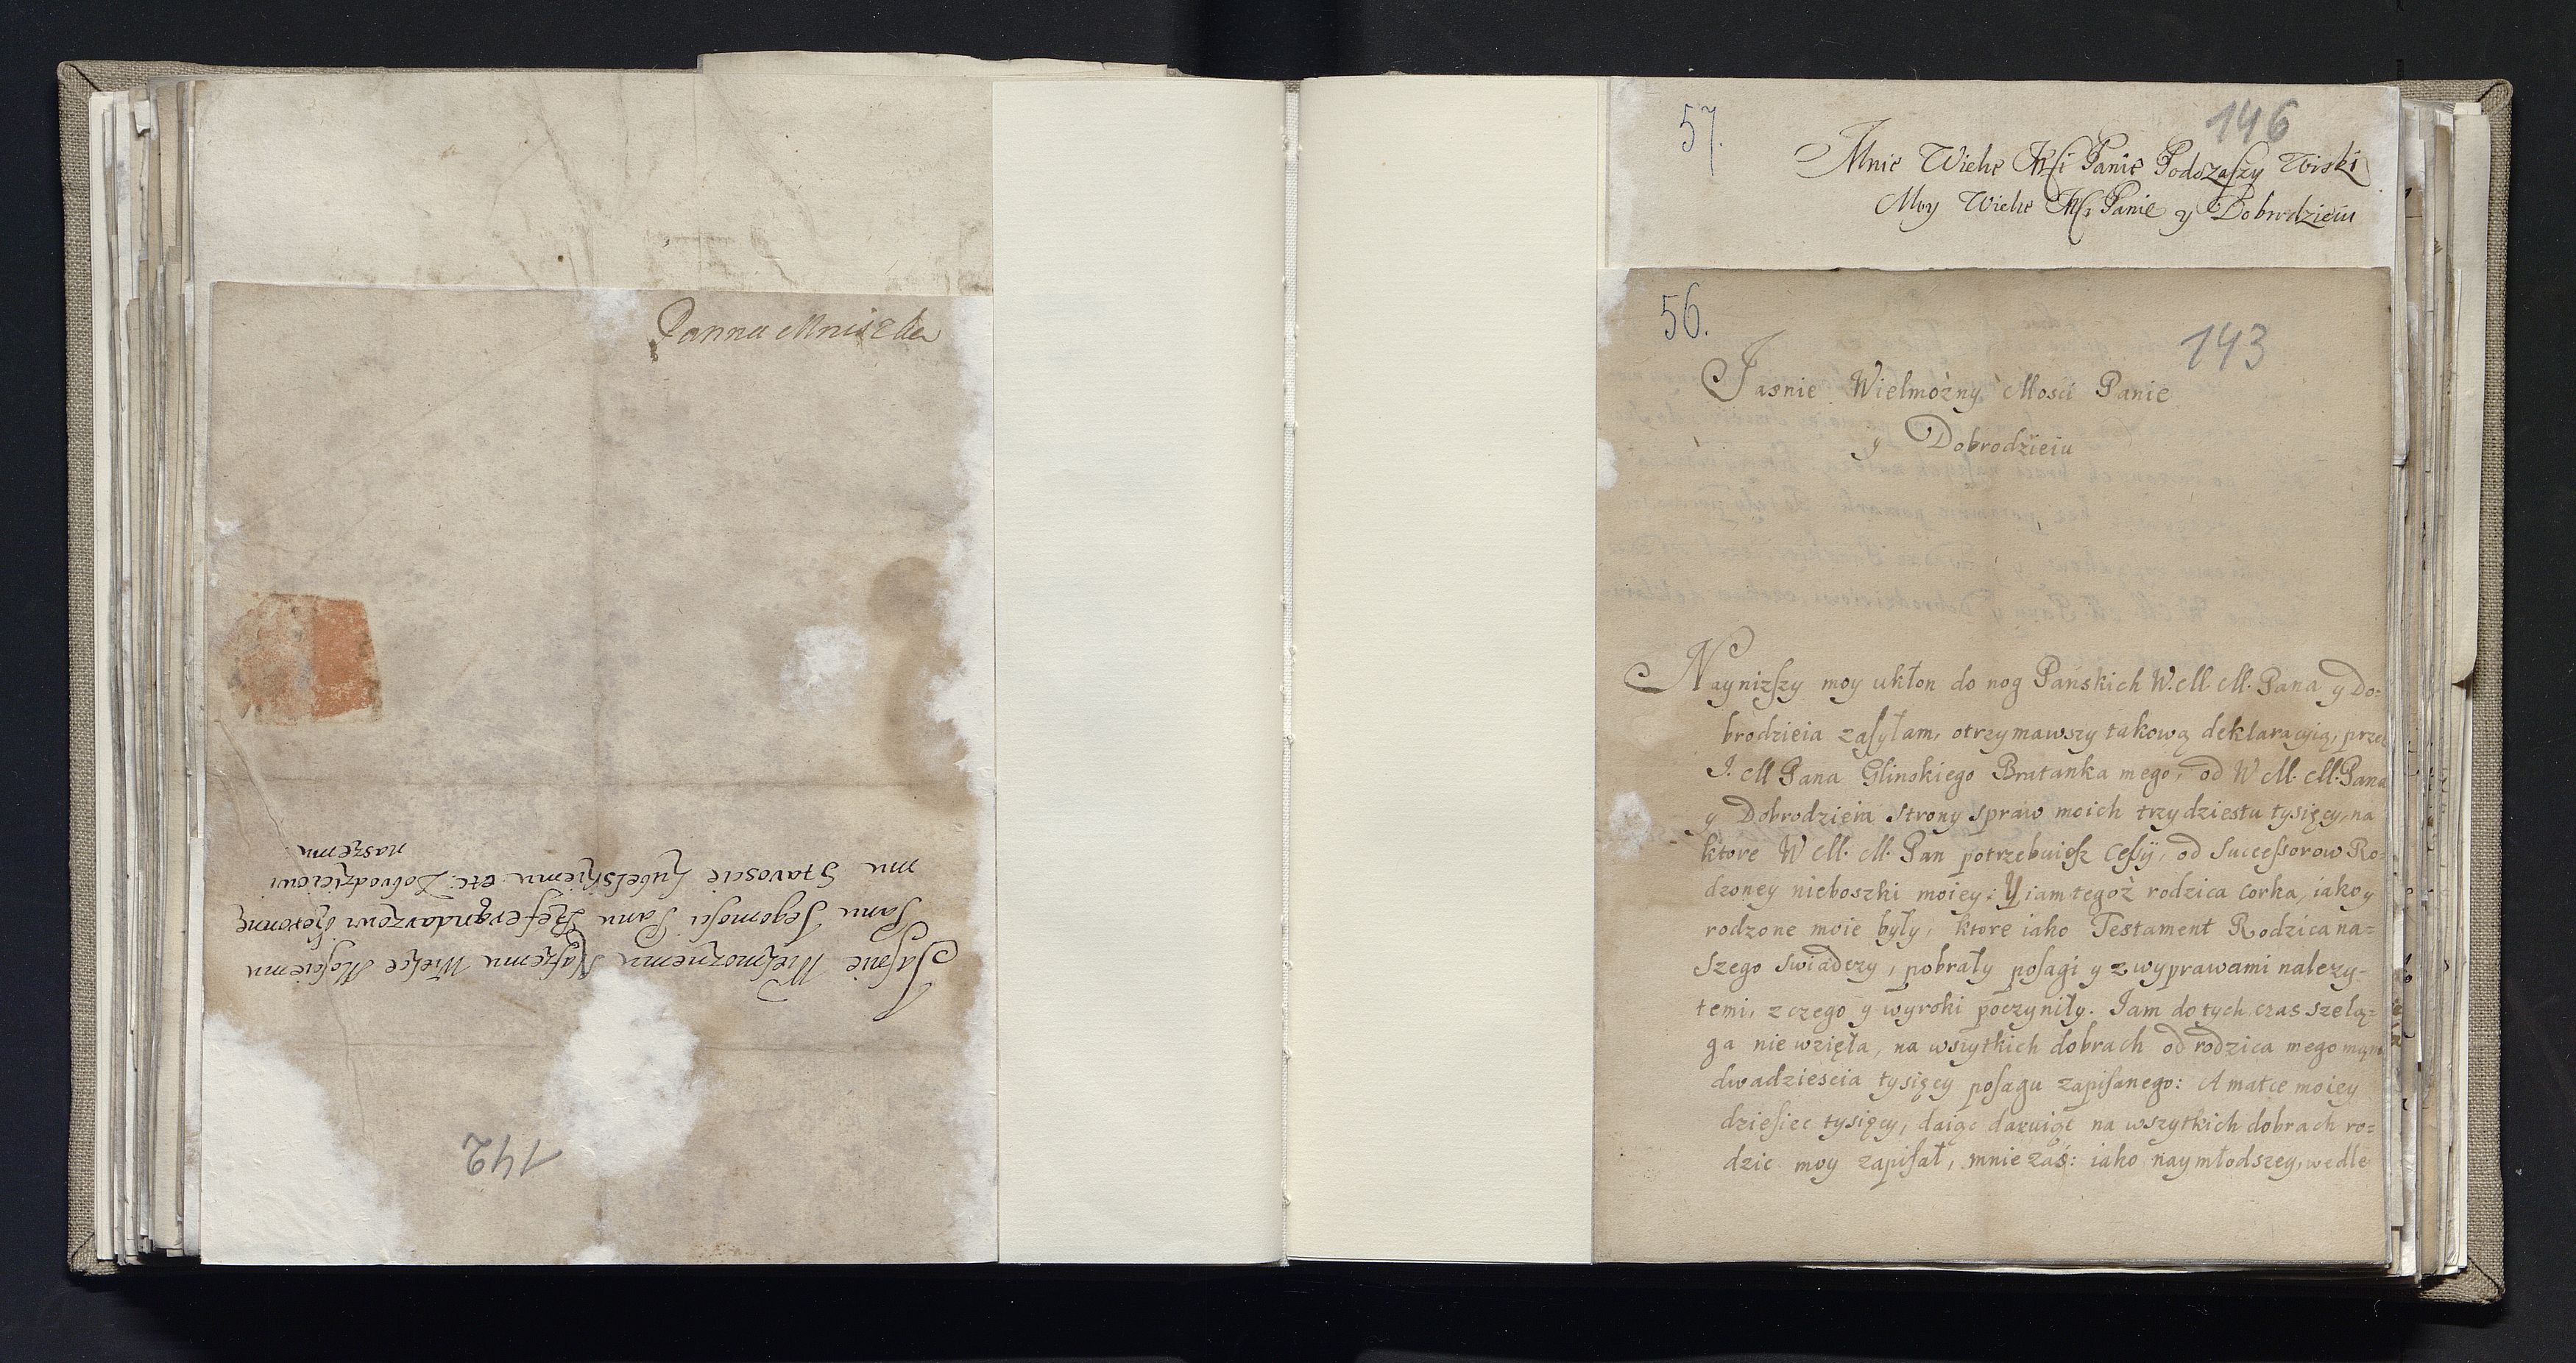 Panna Mniszka
Jasnie Wielmożnemu Naszemu Wielce Mosciemu
Panu Jegomosci Panu Referendarzowi Koronne
mu Staroscie Lubelskiemu etc: Dobrodzieiowi
naszemu
142
57.
146
Mnie Wielce Msci Panie Podczaszy
Moy Wielce Msci Panie y Dobrodzieiu
56.
143
Jasnie Wielmożny Mosci Panie
y Dobrodzieiu
Nayniższy moy ukłon do nog Pańskich W. M. M. Pana y Do=
brodzieia zasyłam, otrzymawszy takową deklaracyią, przez
J. M Pana Glinskiego Bratanka mego, od W M. M. Pana
y Dobrodzieia strony spraw moich trzydziestu tysięcy, na
ktore W M. M. Pan potrzebuiesz Cessÿi, od Successorow Ro=
dzoney nieboszki moiey: Y iam tegoż rodzica corka, iako y
rodzone moie były, ktore iako Testament Rodzica na=
szego swiadczy, pobrały posagi y z wyprawami należy=
temi, z czego y wyroki poczyniły. Jam do tych czas szelą=
ga nie wzięła, na wszytkich dobrach od rodzica mego mam
dwadziescia tysięcy posagu zapisanego: A matce moiey
dziesiec tysięcy, daiąc daruiąc na wszytkich dobrach ro=
dzic moy zapisał, mnie zaś: iako naymłodszey, wedle